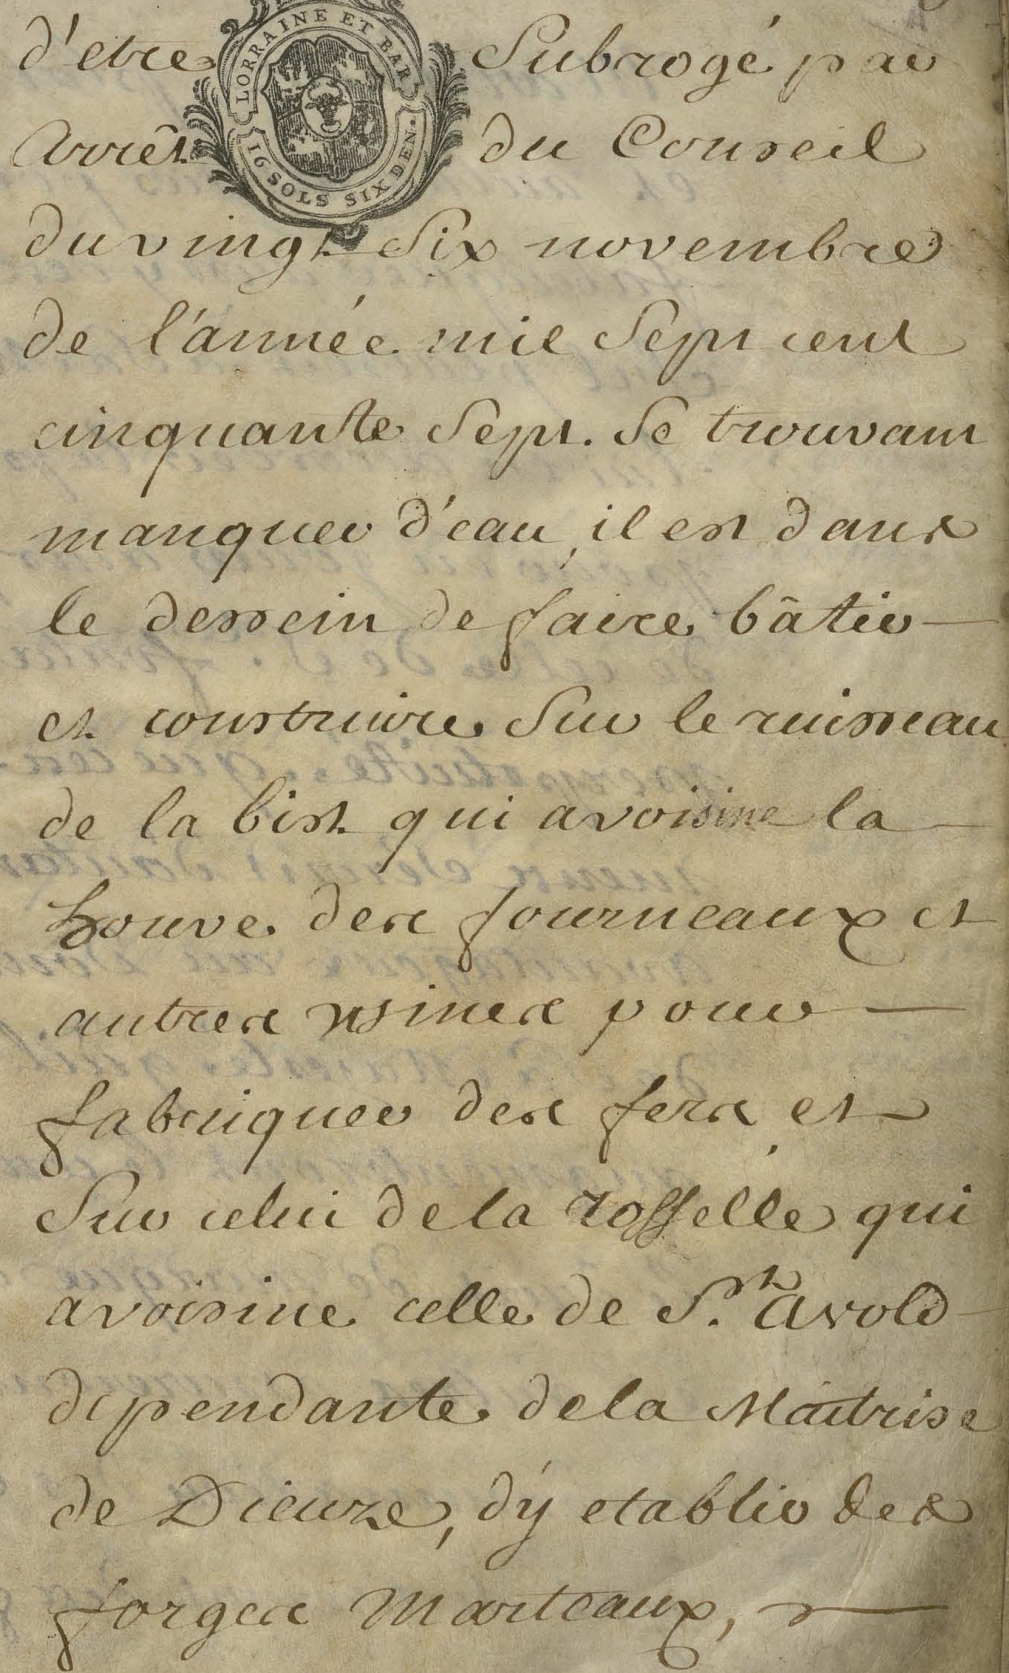 LORRAINE ET BAR
16 SOLS SIX DEN.
d'etre Subrogé par
Arrêt du Conseil
du vingt Six novembre
de l'année mil Sept cent
cinquante Sept. Se trouvant
manquer d'eau, il est dans
le dessein de faire bâtir
et construire Sur le ruisseau
de la bist qui avoisine la
houve des fourneaux et
autres usines pour
fabriquer des fers et
Sur celui de la rosselle qui
avoisine celle de St. avold
dependante de la Maitrise
de Dieuze, d'y etablir des
forges Marteaux,